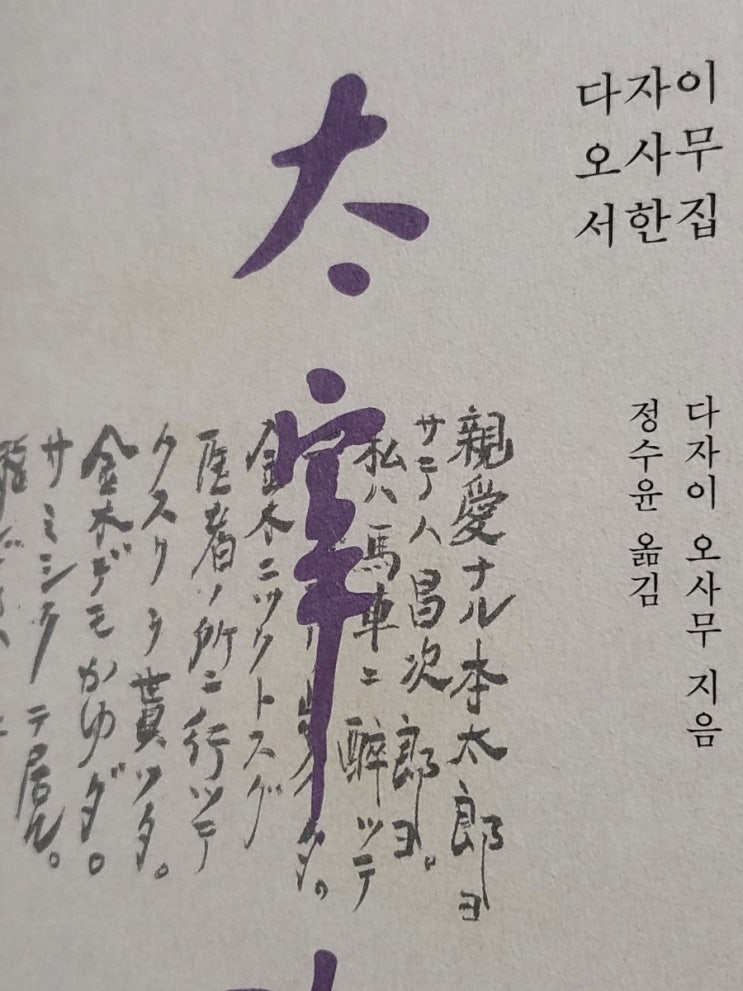 다자이
오사무
서한집
다자이 오사무 지음
정수윤 옮김
太宰
親愛ナル本太郎ヨ
サテハ昌次郎ヨ。
私ハ馬車ニ酔ッテ
金木ニツクトスグ
医者ノ所ニ行ッテ
クスリヲ貰ッタ。
金木デモかゆダ。
サミシクテ居ル。